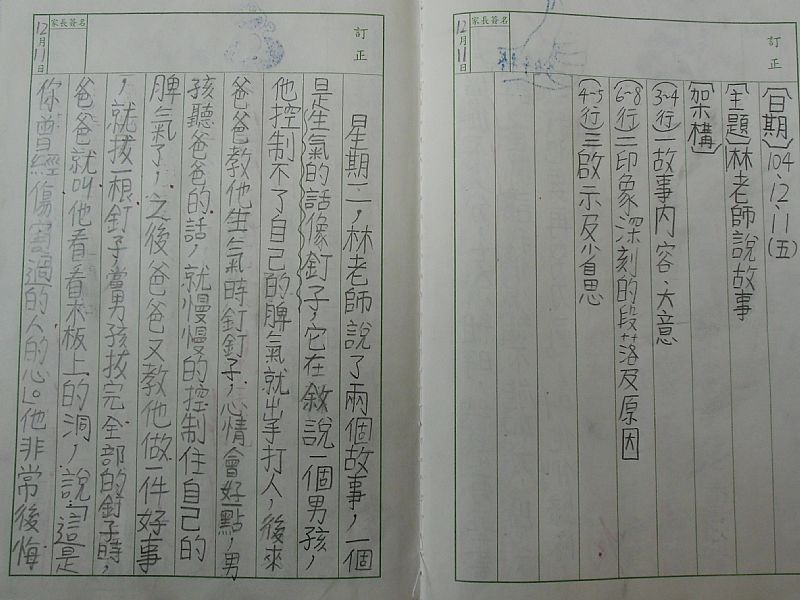 訂正
家長簽名
12月11日
(日期)104.12.11(五)
(主題)林老師說故事
(架構)
(3~4行)一故事內容、大意
(6~8行)二印象深刻的段落及原因
(4~5行)三啟示及省思
訂正
家長簽名
12月11日
星期二,林老師說了兩個故事,一個
是生氣的話像釘子,它在敘說一個男孩,
他控制不了自己的脾氣就出手打人,後來
爸爸教他生氣時釘釘子,心情會好一點,男
孩聽爸爸的話,就慢慢的控制住自己的
脾氣了,之後爸爸又教他做一件好事
,就拔一根釘子,當男孩拔完全部的釘子時,
爸爸就叫他看看木板上的洞,說:「這是
你曾經傷害過的人的心」。他非常後悔